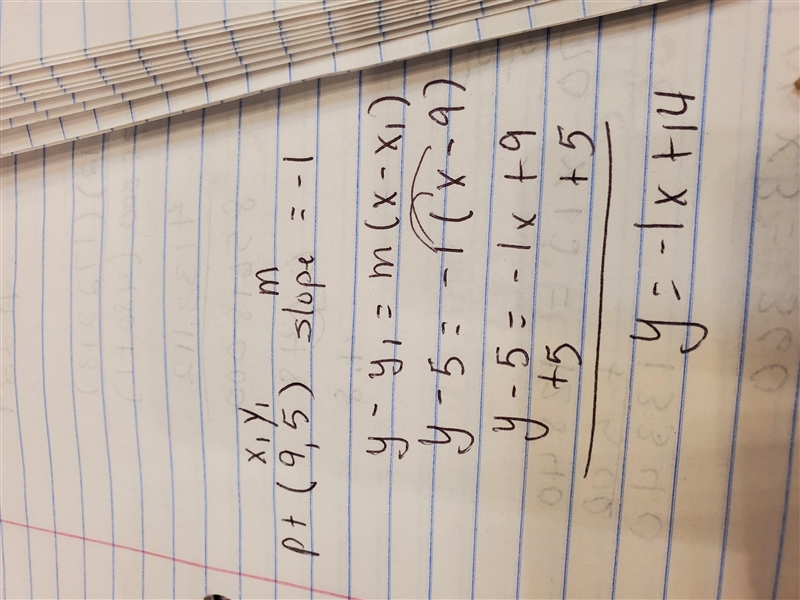 x₁ y₁ m
pt (9,5) slope = -1
y - y₁ = m (x - x₁)
y - 5 = -1 (x - 9)
y - 5 = -1x + 9
+5 +5
y = -1x + 14